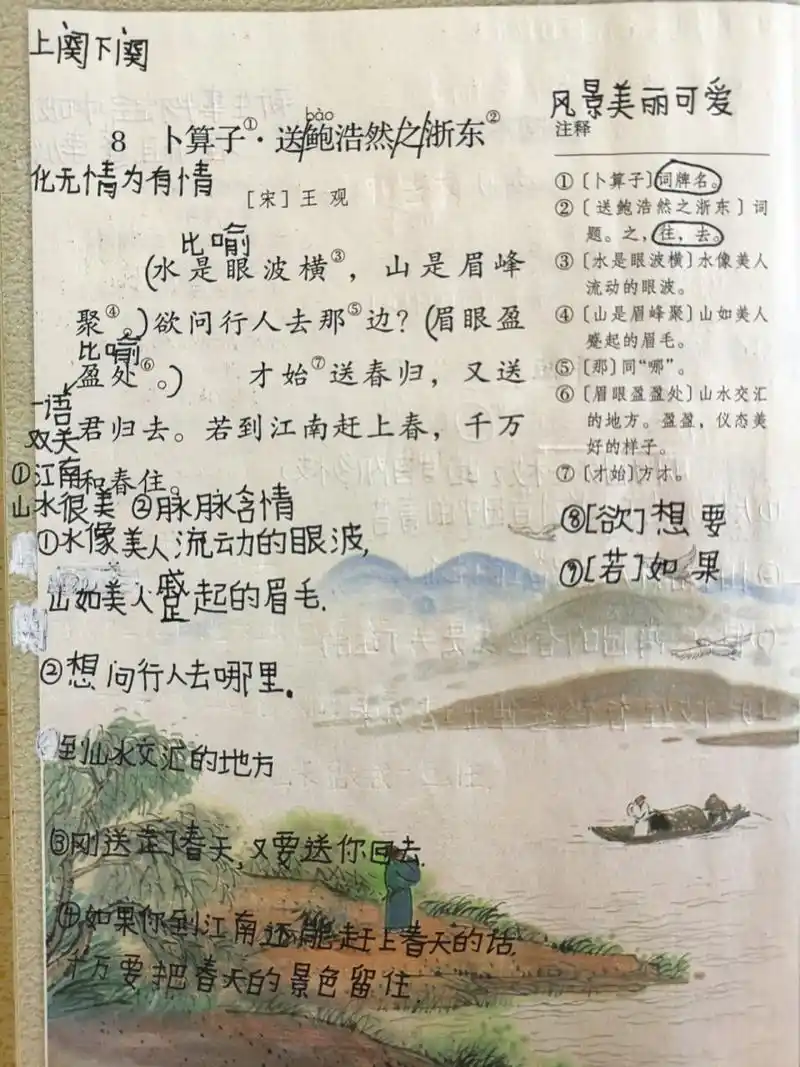 上阕下阕
风景美丽可爱
bào
8 卜算子①·送/鲍浩然/之/浙东②
化无情为有情
[宋]王 观
比喻
(水是眼波横③，山是眉峰
聚④。)欲问行人去那⑤边？(眉眼盈
比喻
盈处⑥。) 才始⑦送春归，又送
一语
双关
君归去。若到江南赶上春，千万
和春住。
①江南
山水很美 ②脉脉含情
①水像美人流动的眼波,
山如美人蹙起的眉毛.
②想问行人去哪里.
到山水交汇的地方
③刚送走了春天,又要送你回去.
④如果你到江南还能赶上春天的话.
千万要把春天的景色留住.
注释
①〔卜算子〕词牌名。
②〔送鲍浩然之浙东〕词
题。之，往，去。
③〔水是眼波横〕水像美人
流动的眼波。
④〔山是眉峰聚〕山如美人
蹙起的眉毛。
⑤〔那〕同“哪”。
⑥〔眉眼盈盈处〕山水交汇
的地方。盈盈，仪态美
好的样子。
⑦〔才始〕方才。
⑧[欲]想要
⑨[若]如果